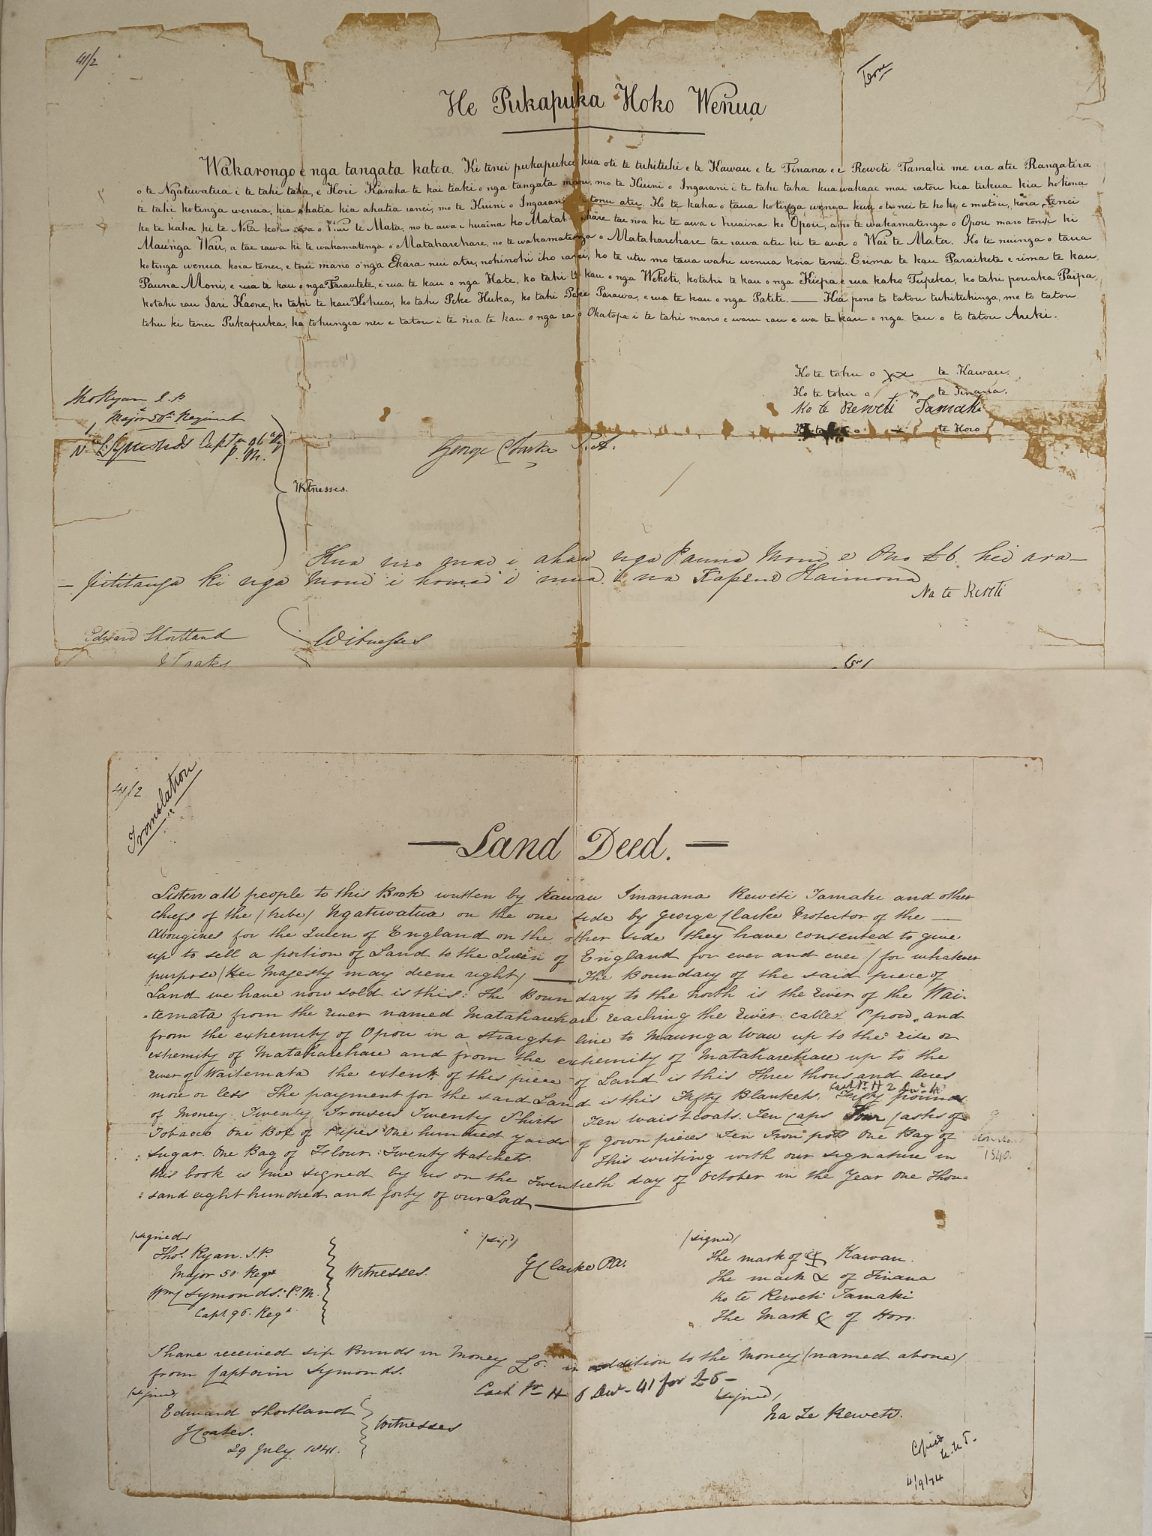 41/2
He Pukapuka Hoko Wenua
Wakarongo e nga tangata katoa. Ki tenei pukapuka kua oti te tuhituhi e te Kawau e te Tinana e Reweti Tamaki me era atu Rangatira
o te Ngatiwatua i te tahi taha, e Hori Karaka te kai tiaki o nga tangata maori, mo te Kuini o Ingarani i te tahi taha kua wakaae mai ratou kia tukua kia hokona
te tahi kotinga wenua, kia ahatia kia ahatia ranei, mo te Kuini o Ingarani tonu atu. Ko te kaha o taua kotinga wenua kua oti nei te hoko e matou, koia tenei
ko te kaha ki te Nota ko te awa o Wai te Mata, no te awa e huaina ko Mataharehare tae noa ki te awa e huaina ko Opou, a no te wakamatenga o Opou maro tonu ki
Maunga Wau, a tae rawa ki te wakamatenga o Mataharehare, no te wakamatenga o Mataharehare tae rawa atu ki te awa o Wai te Mata. Ko te nuinga o taua
kotinga wenua koia tenei, e toru mano o nga Ekara nui atu, nohinohi iho ranei, ko te utu mo taua wahi wenua koia tenei Erima te kau Paraikete e rima te kau
Pauna Moni, e rua te kau o nga Tarautete, e rua te kau o nga Hate, ko tahi te kau o nga Weketi, kotahi te kau o nga Kiepa e wa kaho Tupeka, ko tahi pouaka Paipa,
kotahi rau Iari Kaone, ko tahi te kau Kohua, ko tahi Peke Huka, ko tahi Peke Parawa, e rua te kau o nga Patiti. — Hia pono te tatou tuhituhinga, me to tatou
tohu ki tenei Pukapuka, ka tohungia nei e tatou i te rua te kau o nga ra o Okatopa i te tahi mano e waru rau e wa te kau o nga tau o to tatou Ariki.
Ko te tohu o xx te Kawau.
Ko te tohu o x te Tinana.
Ko te Reweti Tamaki
Ko te tohu o x te Horo
Tho Ryan J.P.
Major 50th Regiment
Wm C Symonds Captn 96th Rg
P.M.
Witnesses.
George Clarke P.A.
Kua riro mai i ahau nga Pauna Moni e Ono £6. hei ara–
– pititanga ki nga Moni i homai i mua i na Kapene Haimona
Na te Reweti
Edward Shortland
J Coates
Witnesses
41/2
Translation
— Land Deed. —
Listen all people to this Book written by Kawau Tinanana Reweti Tamaki and other
chiefs of the (tribe) Ngatiwatua on the one side by George Clarke Protector of the —
Aborigines for the Queen of England on the other side they have consented to give
up to sell a portion of Land to the Queen of England for ever and ever (for whatever
purpose (Her Majesty may deem right) — The Boundary of the said piece of
Land we have now sold is this: The Boundary to the North is the River of the Wai-
-temata from the river named Mataharehare reaching the River called "Opou" and
from the extremity of Opou in a straight line to Maunga Wau up to the rise or
extremity of Mataharehare and from the extremity of Mataharehare up to the
River of Waitemata the extent of this piece of Land is this Three thousand Acres
more or less The payment for the said Land is this Fifty Blankets. Fifty pounds
of Money. Twenty Trousers Twenty Shirts Ten waistcoats. Ten Caps Four Casks of
Tobacco One Box of Pipes One hundred yards of gown pieces Ten Iron pots One Bag of
Sugar. One Bag of Flour. Twenty Hatchets. This writing with our signature in
this book is true signed by us on the Twentieth day of October in the Year One Thou-
:sand eight hundred and forty of our Lord
1840.
(signed)
Thos. Ryan J.P.
Major 50 Regt
Wm C Symonds. P.M.
Capt 96. Regt
Witnesses.
(sigd)
G Clarke PA.
(signed)
The mark of x Kawau.
The mark x of Tinana
Ko te Reweti Tamaki
The Mark x of Horo.
I have received six Pounds in Money £6. in addition to the Money (named above)
from Captain Symonds.
(signed)
Na Te Reweti.
(signed)
Edward Shortland
J Coates.
29 July 1841.
Witnesses
4/9/74